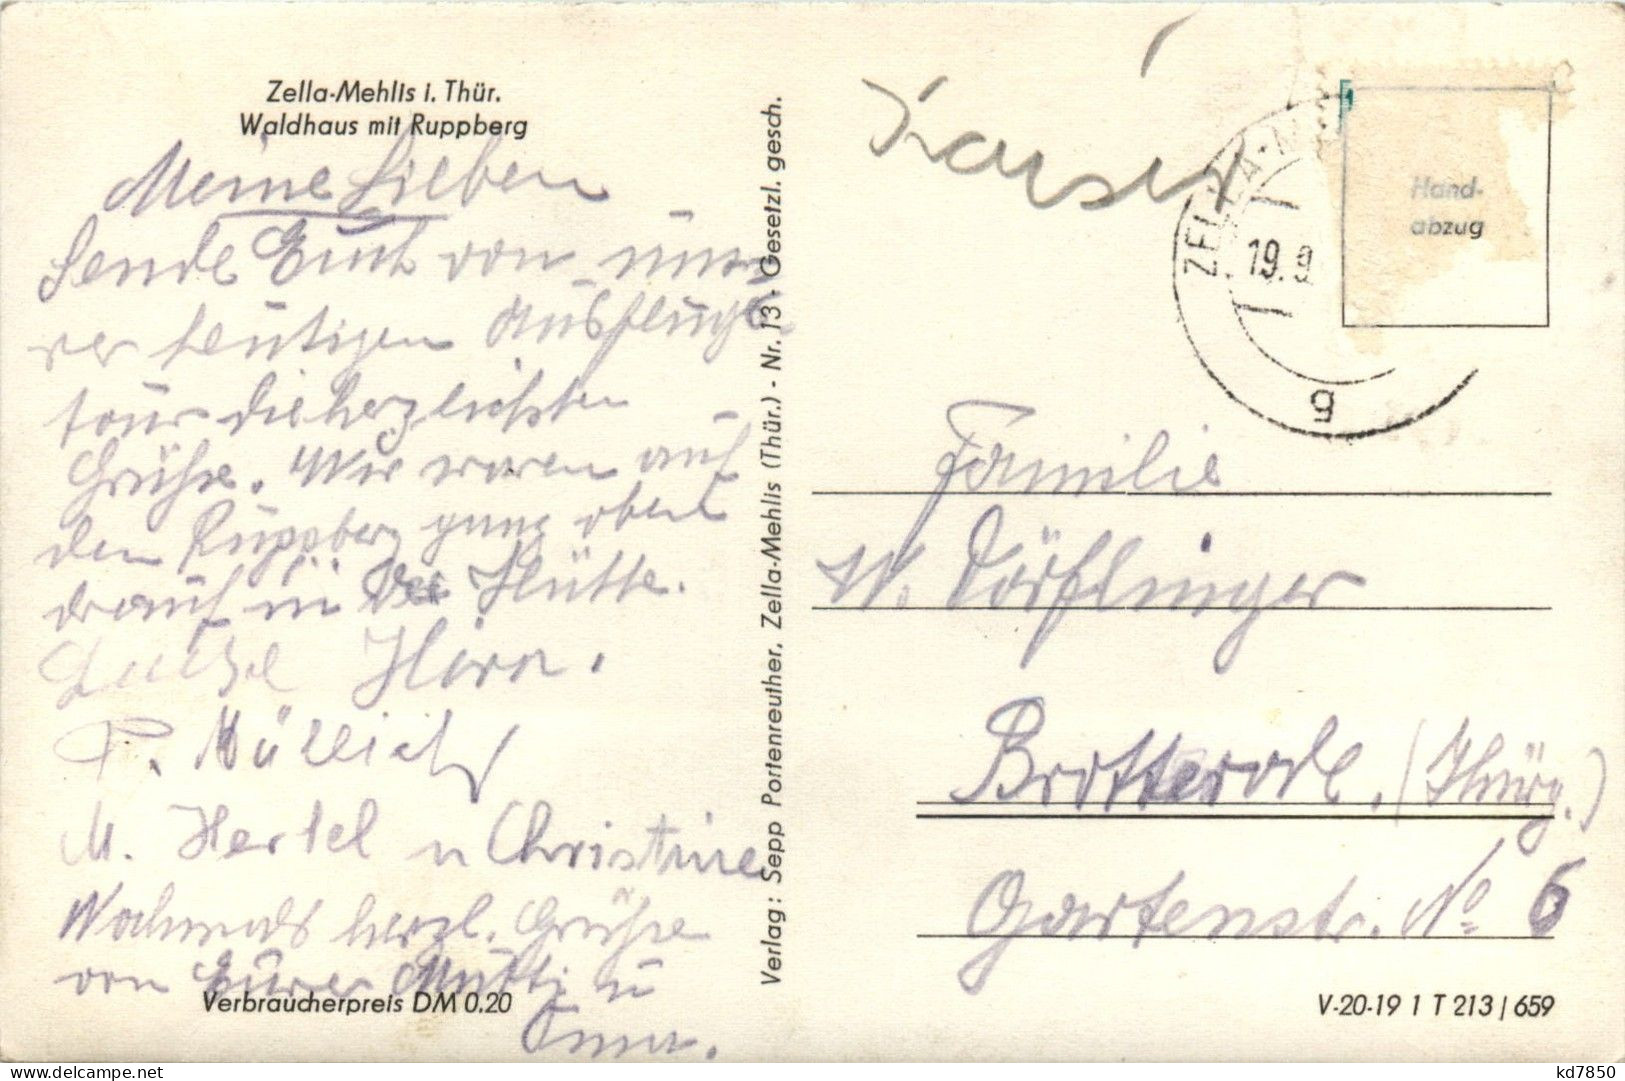 Zella-Mehlis i. Thür.
Waldhaus mit Ruppberg
Meine Lieben
Sende Euch von unse-
rer heutigen Ausflugs-
tour die herzlichsten
Grüße. Wir waren auf
den Ruppberg ganz oben
drauf in der Hütte.
Luise Hirn.
P.
M. Hertel u Christine
Nochmals herzl. Grüße
von Eurer Mutti u
Oma.
Verbraucherpreis DM 0.20
Verlag: Sepp Portenreuther, Zella-Mehlis (Thür.) - Nr. 13 - Gesetzl. gesch.
Kaiser
ZELLA-M
19.9
g
Hand-
abzug
Familie
W. Dörflinger
Brotterode. (Thürg.)
Gartenstr. No 6
V-20-19 1 T 213/659
kd7850